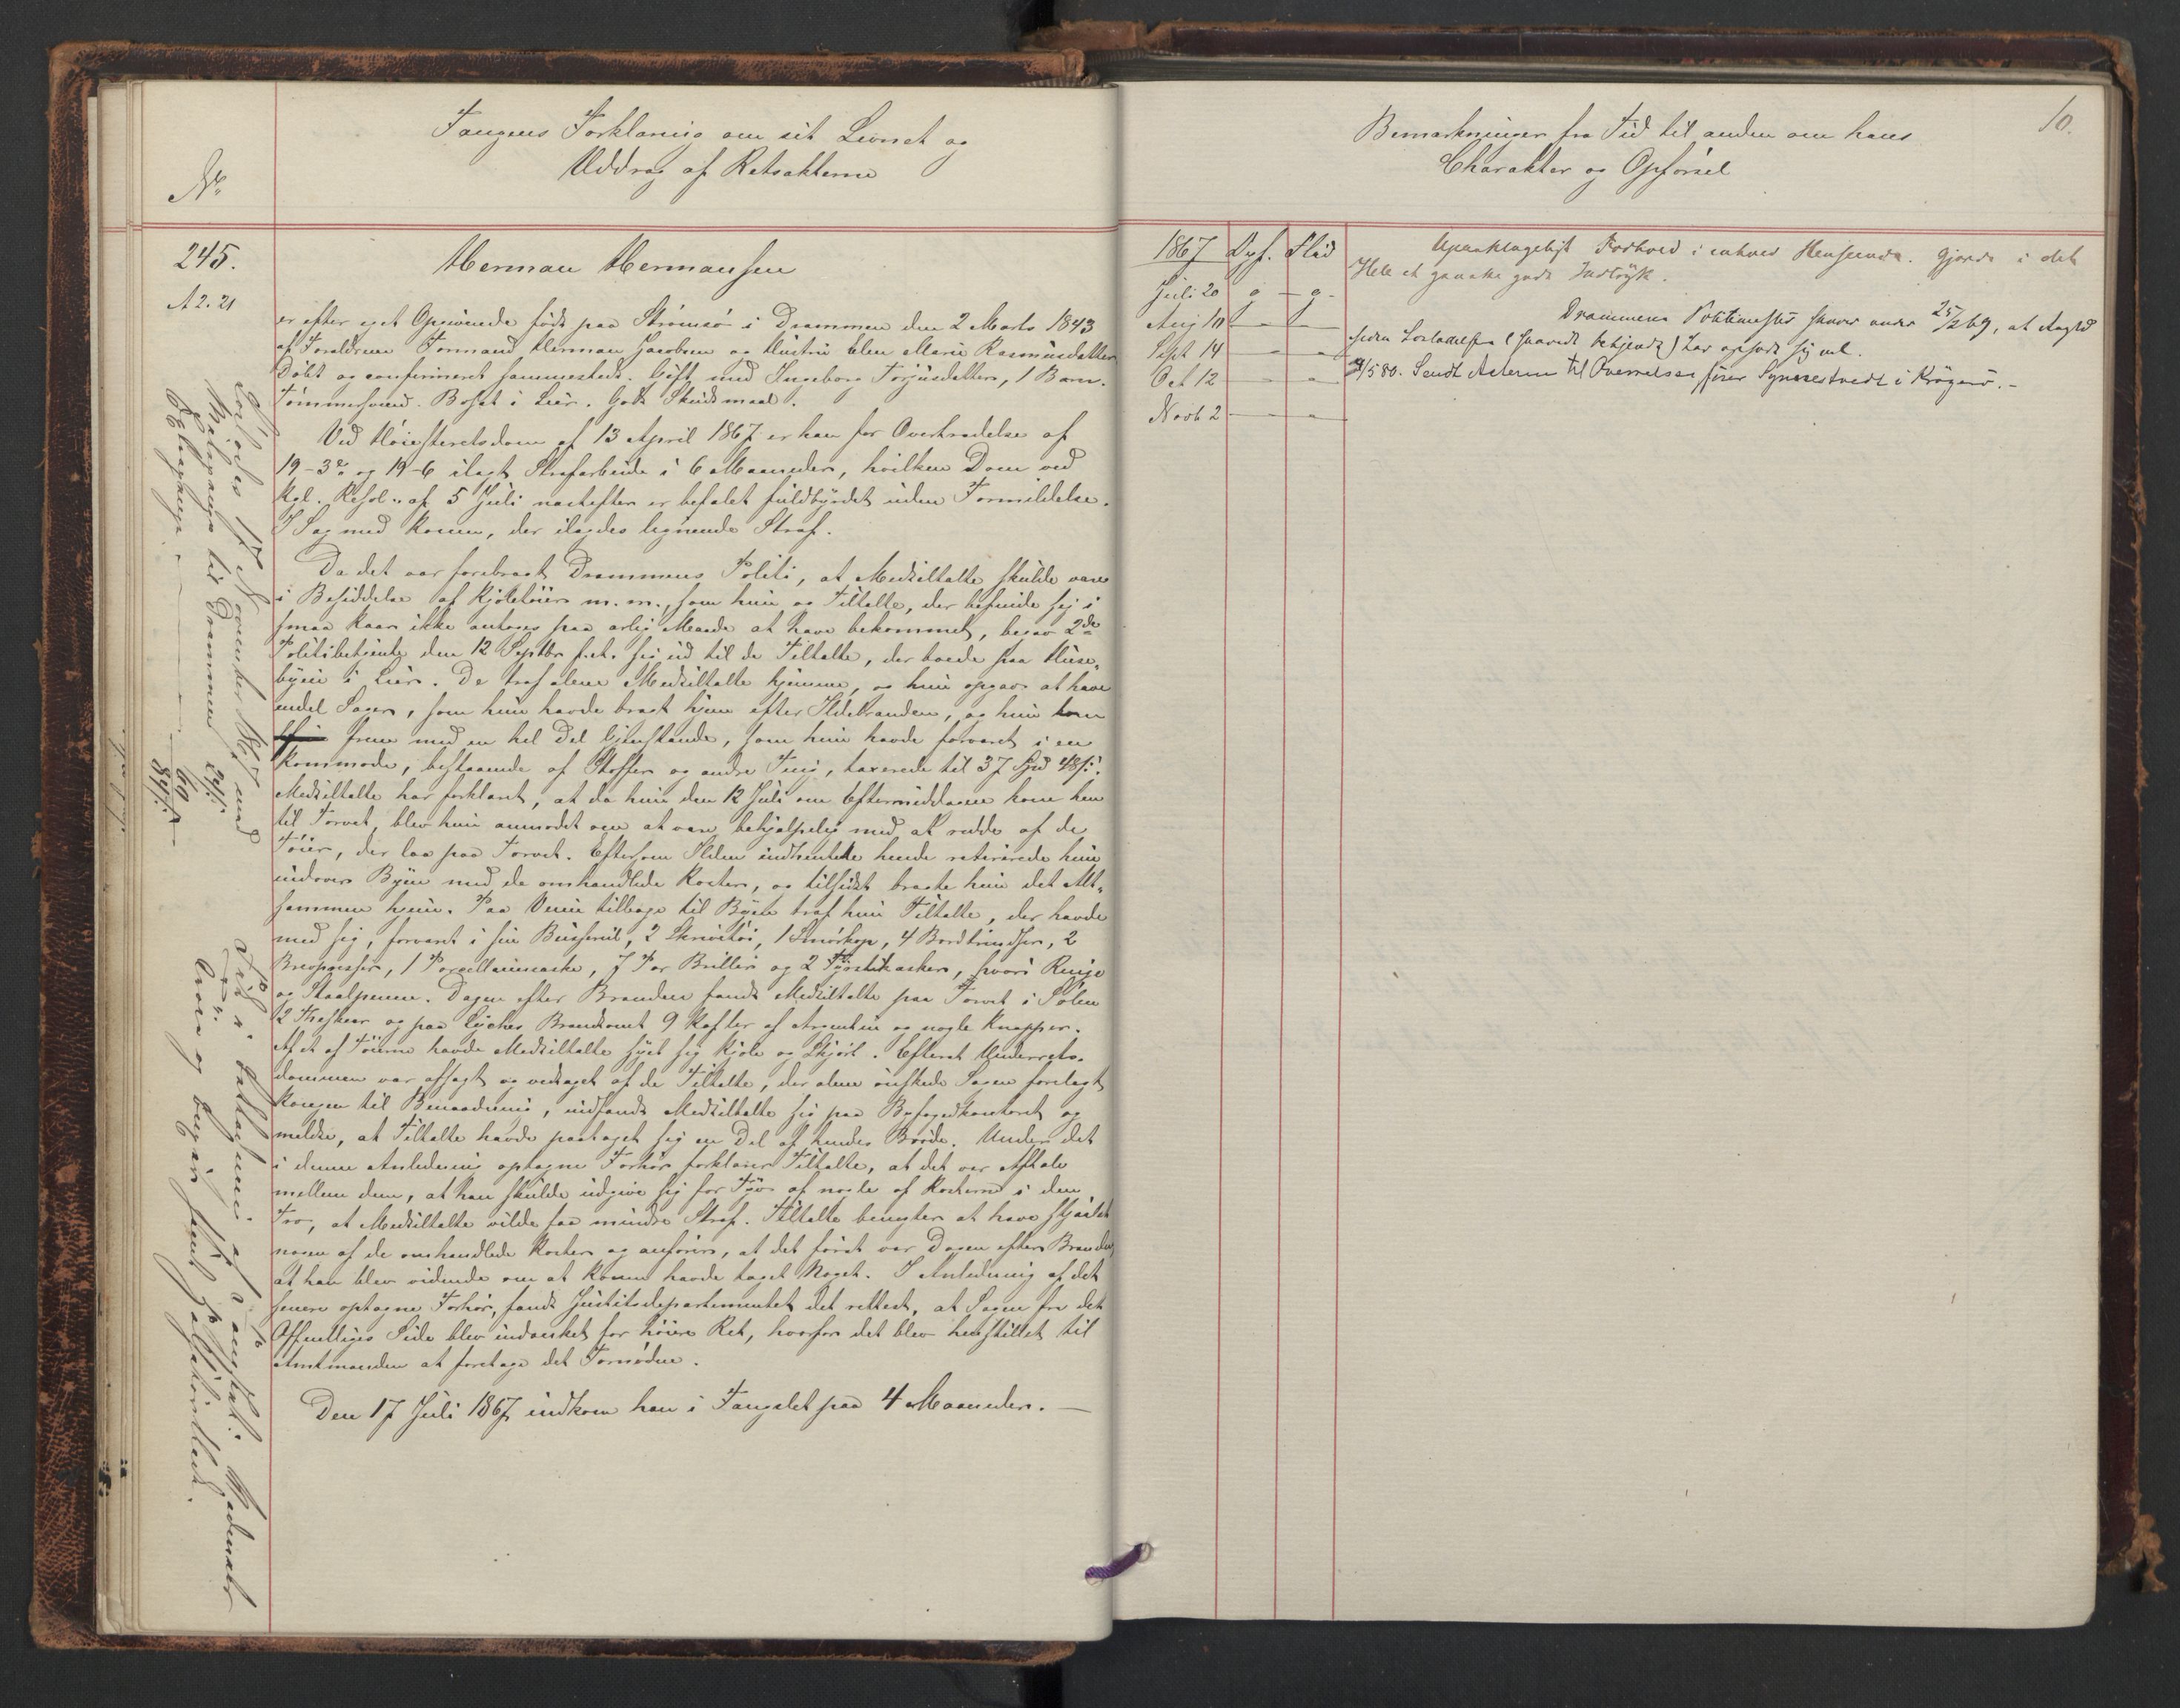 Fangens Forklaring om sit Levnet og
Uddrag af Retsakterne
No
245.
A 2. 21
Herman Hermansen
er efter eget Opgivende født paa Strømsø i Drammen den 2 Marts 1843
af Forældrene Formand Herman Jacobsen og Hustru Elen Marie Rasmusdatter
Døbt og confirmeret sammesteds. Gift med Ingeborg Torjusdatter, 1 Barn.
Tømmersvend. Bosat i Lier. Godt Skudsmaal.
Ved Høiesteretsdom af 13 April 1867 er han for Overtrædelse af
19-3 og 19-6 ilagt Strafarbeide i 6 Maaneder, hvilken Dom ved
Kgl. Resol. af 5 Juli næstefter er befalet fuldbyrdet uden Formildelse.
I Sag med Konen, der ilagdes lignende Straf.
Da det var forebragt Drammens Politi, at Medtiltalte skulde være
i Besiddelse af Kjoletøier m. m., som hun og Tiltalte, der befinde sig i
smaa Kaar ikke antoges paa ærlig Maade at have bekommet, begav 2de
Politibetjente den 12 Septbr f. A. sig ud til de Tiltalte, der boede paa Huse-
byen i Lier. De traf alene Medtiltalte hjemme, og hun opgav at have
endel Sager, som hun havde bragt hjem efter Ildebranden, og hun kom
frem med en hel Del Gjenstande, som hun havde forvaret i en
Kommode, bestaaende af Stoffer og andre Ting, taxerede til 37 Spd 48 s.
Medtiltalte har forklaret, at da hun den 12 Juli om Eftermiddagen kom hen
til Torvet, blev hun anmodet om at være behjælpelig med at redde af de
Tøier, der laa paa Torvet. Eftersom Ilden indhentede hende retirerede hun
indover Byen med de omhandlede Koster, og tilsidst bragte hun det Alt-
sammen hjem. Paa Veien tilbage til Byen traf hun Tiltalte, der havde
med sig, forvaret i sin Busserul, 2 Skrivetøi, 1 Smørkop, 4 Bordbrindser, 2
Brevpresser, 1 Porcellainsæske, 7 Par Briller og 2 Fyrstikæsker, hvori Ringe
og Staalpenne. Dagen efter Branden fandt Medtiltalte paa Torvet i Sølen
2 Theskeer og paa Lyches Brandtomt 9 Gafler af Argentin og nogle Knapper.
Af et af Tøierne havde Medtiltalte syet sig Kjole og Skjørt. Efterat Underrets-
dommen var afsagt og vedtaget af de Tiltalte, der alene ønskede Sagen forelagt
Kongen til Benaadning, indfandt Medtiltalte sig paa Byfogedkontoret og
meldte, at Tiltalte havde paataget sig en Del af hendes Brøde. Under det
i denne Anledning optagne Forhør forklarer Tiltalte, at det var Aftale
mellem dem, at han skulde udgive sig for Tyv af nogle af Kosterne i den
Tro, at Medtiltalte vilde faa mindre Straf. Tiltalte benegter at have stjaalet
nogen af de omhandlede Koster og anfører, at det først var Dagen efter Branden
at han blev vidende om at Konen havde taget Noget. I Anledning af det
senere optagne Forhør, fandt Justitsdepartementet det rettest, at Sagen fra det
Offentliges Side blev indanket for høiere Ret, hvorfor det blev henstillet til
Amtmanden at foretage det Fornødne.
Den 17 Juli 1867 indkom han i Fængslet paa 4 Maaneder.
Løslades 17 November Kl. 7 med
Reisepenge til Drammen 24 s.
60
84 s.
Bemærkninger fra Tid til anden om hans
Charakter og Opførsel
10.
1867 Opf. Flid
Juli 20 g - g -
Aug 10 - -
Sept 14 - -
Oct 12 - -
Novb 2 - -
Upaaklageligt Forhold i enhver Henseende. Gjorde i det
Hele et ganske godt Indtryk.
Drammens Politimester skriver under 25/2 69, at
siden Løsladelsen har opført sig vel.
/5 80. Sendt til i Kragerø.